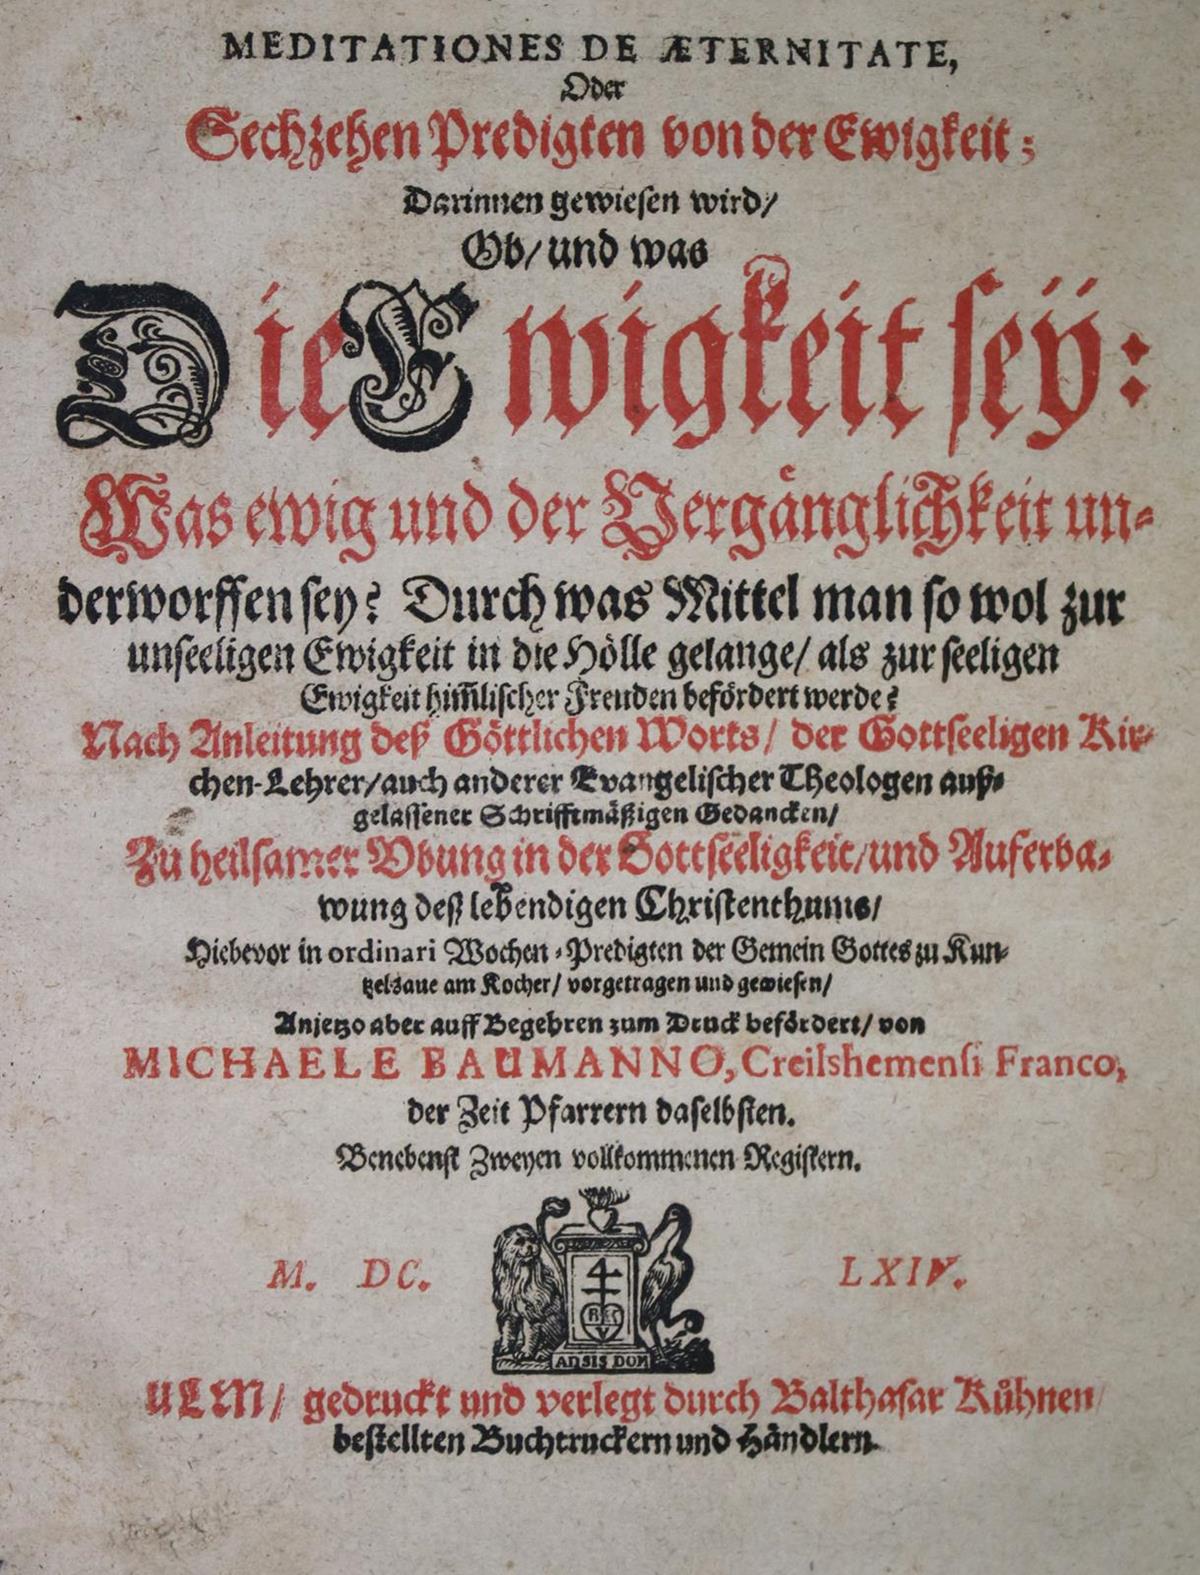 MEDITATIONES DE ÆTERNITATE,
Oder
Sechzehen Predigten von der Ewigkeit;
Darinnen gewiesen wird/
Ob/ und was
Die Ewigkeit seÿ:
Was ewig und der Vergänglichkeit un-
derworffen sey? Durch was Mittel man so wol zur
unseeligen Ewigkeit in die Hölle gelange/ als zur seeligen
Ewigkeit him̃lischer Freuden befördert werde?
Nach Anleitung deß Göttlichen Worts/ der Gottseeligen Kir-
chen-Lehrer/ auch anderer Evangelischer Theologen auß-
gelassener Schrifftmäßigen Gedancken/
Zu heilsamer Vbung in der Gottseeligkeit/ und Auferba-
wung deß lebendigen Christenthums/
Hiebevor in ordinari Wochen-Predigten der Gemein Gottes zu Kun-
tzelsaue am Kocher/ vorgetragen und gewiesen/
Anjetzo aber auff Begehren zum Druck befördert/ von
MICHAELE BAUMANNO, Creilshemensi Franco,
der Zeit Pfarrern daselbsten.
Benebenst Zweyen vollkommenen Registern.
M. DC. LXIV.
ADSIS DOM
ULM/ gedruckt und verlegt durch Balthasar Kůhnen/
bestellten Buchtruckern und Händlern.